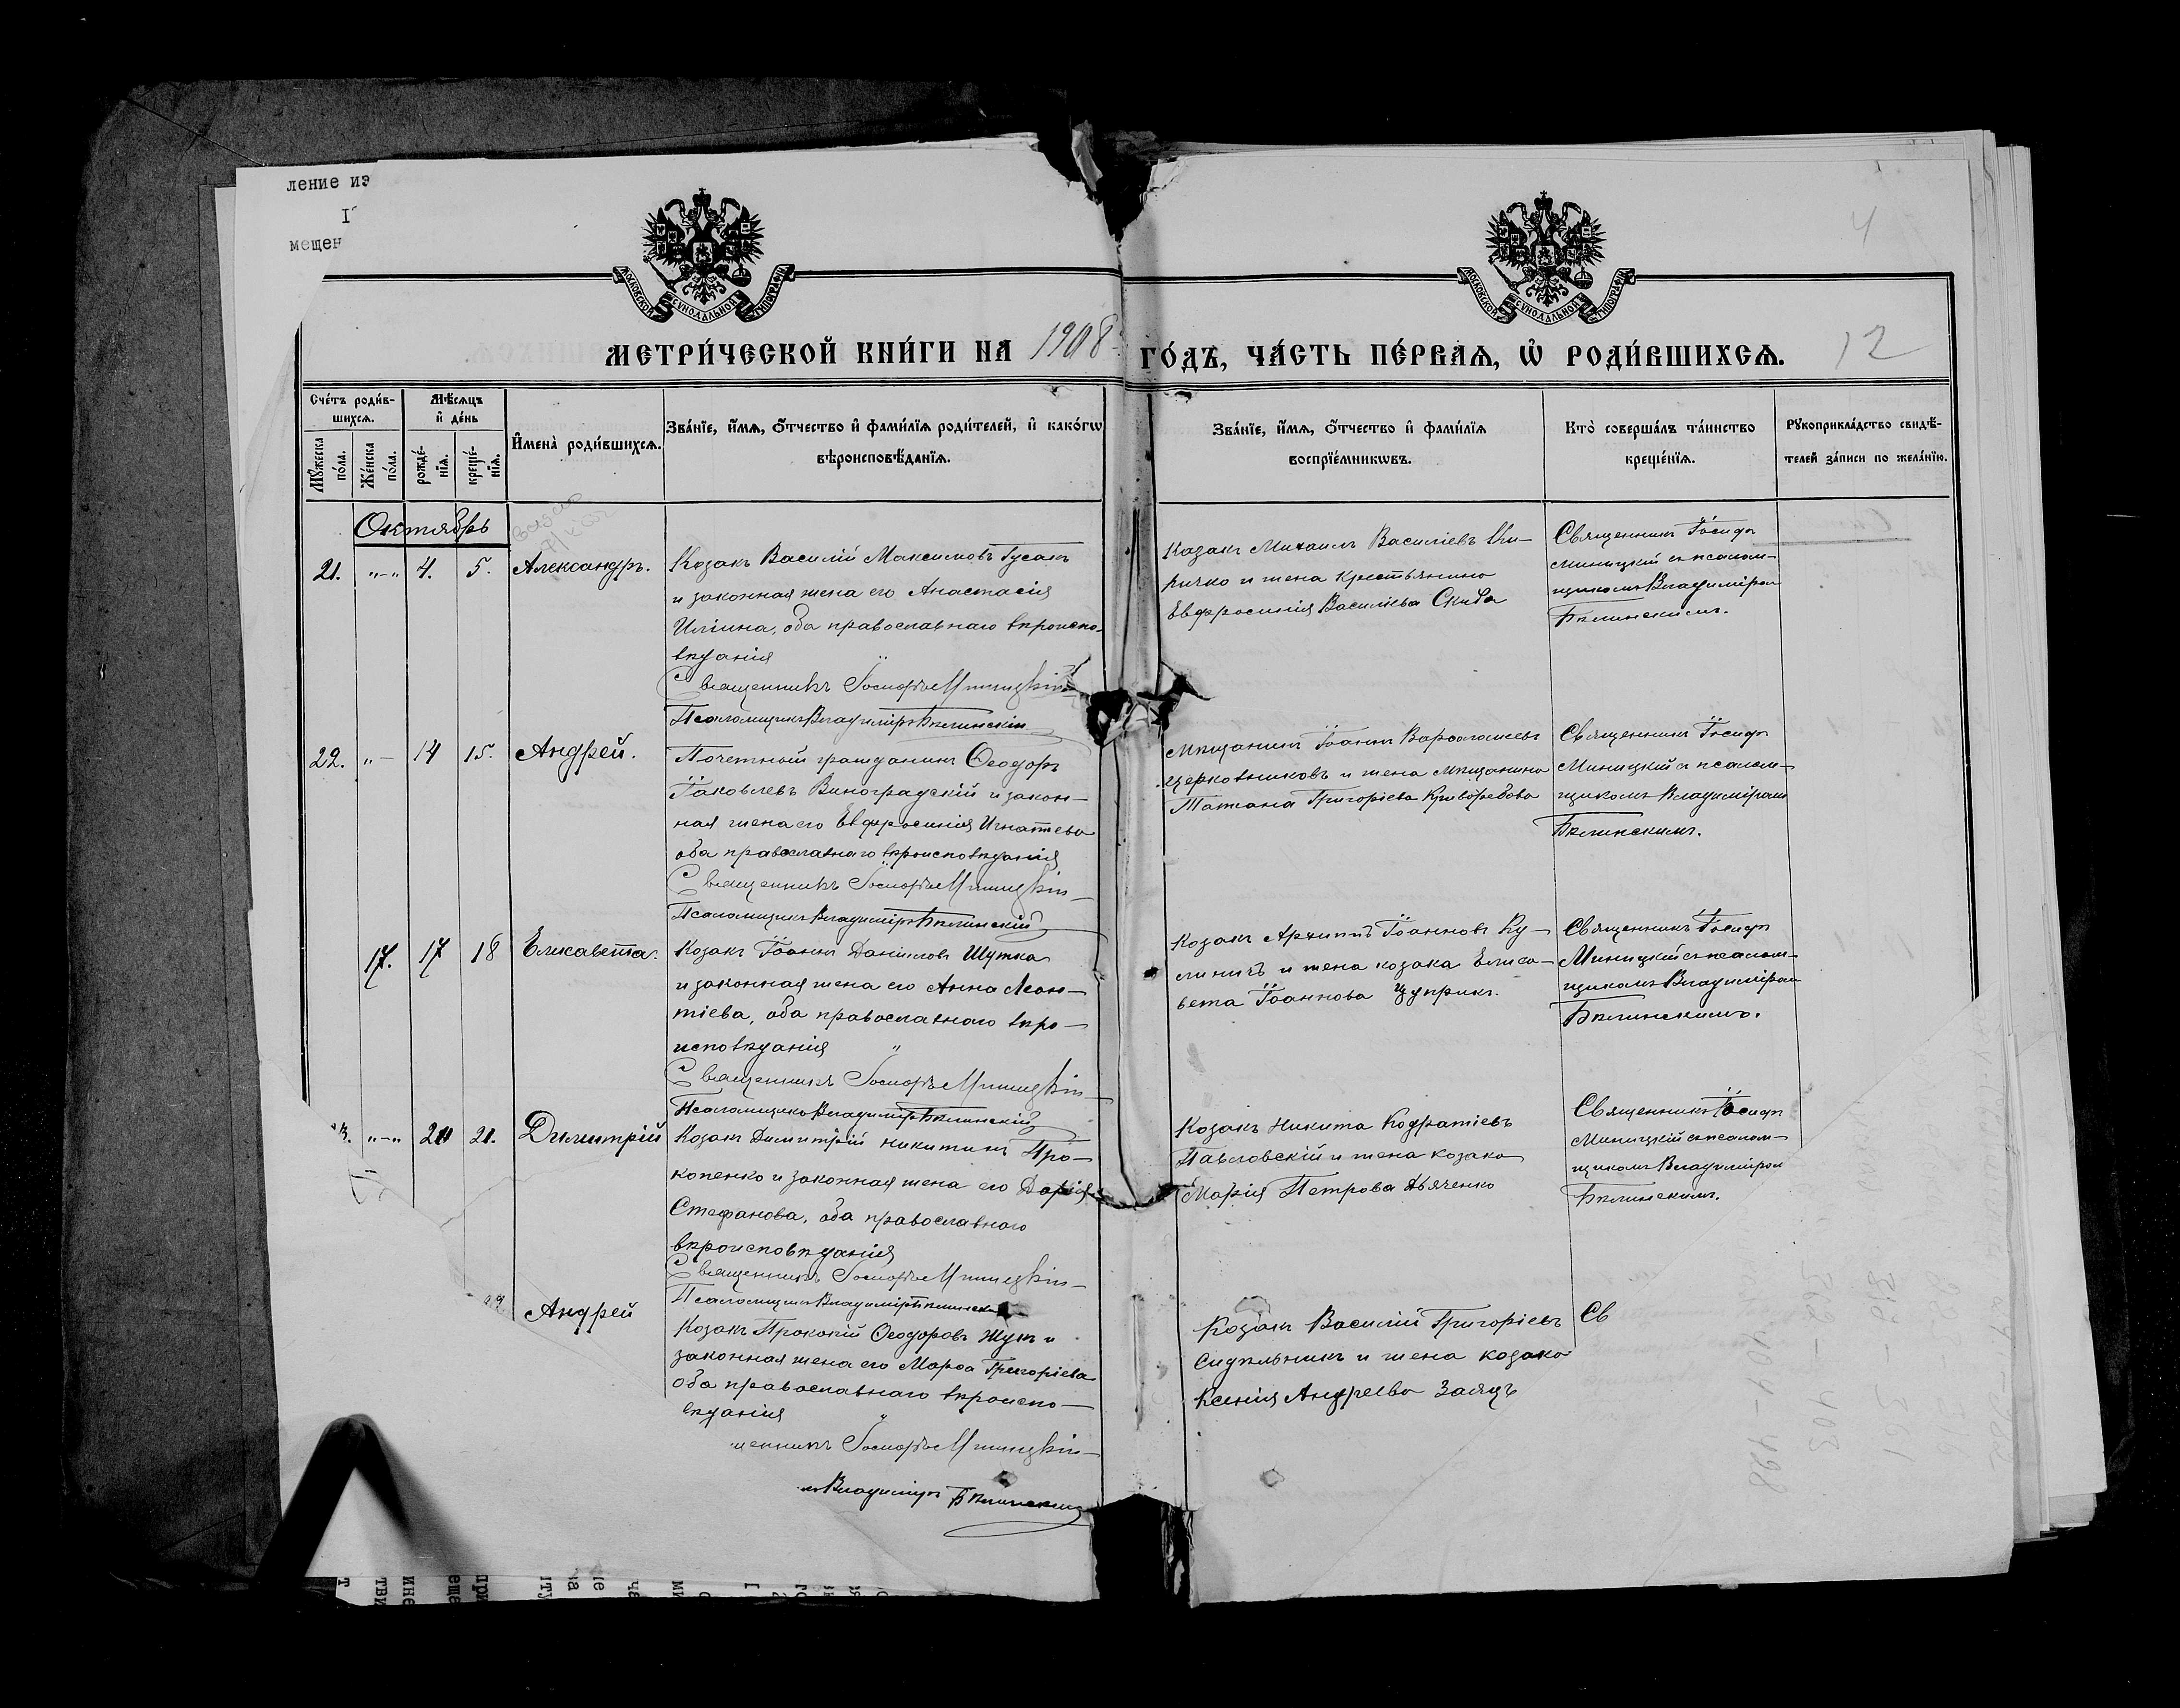 ление из
мещен
МОСКОВСКОЙ СѴНОДАЛЬНОЙ ТИПОГРАФІИ
МОСКОВСКОЙ СѴНОДАЛЬНОЙ ТИПОГРАФІИ
МЕТРИ́ЧЕСКОЙ КНИ́ГИ НА 1908 ГО́ДЪ, ЧА́СТЬ ПЕ́РВАѦ, Ѡ҆ РОДИ́ВШИХСѦ. 12
Сче́тъ роди́в-
шихсѧ.
Мꙋ́жеска
по́ла.
Же́нска
по́ла.
Мѣ́сѧцъ
и҆ де́нь
рожде́-
нїѧ.
креще́-
нїѧ.
И҆мена̀ роди́вшихсѧ.
Зва́нїе, и҆́мѧ, ѻ҆́тчество и҆ фами́лїѧ роди́телей, и҆ како́гѡ
вѣроисповѣ́данїѧ.
Зва́нїе, и҆́мѧ, ѻ҆́тчество и҆ фами́лїѧ
воспрїе́мникѡвъ.
Кто̀ соверша́лъ та́инство
креще́нїѧ.
Рꙋкоприкла́дство свидѣ́-
телей за́писи по жела́нїю.
Октябрь
21. "-" 4. 5. Александръ.
Козакъ Василій Максимовъ Гусакъ
и законная жена его Анастасія
Иліина, оба православнаго вѣроиспо-
вѣданія
Священникъ Іосифъ Миницкій
Псаломщикъ Владиміръ Бѣлинскій
Козакъ Михаилъ Василіевъ Ки-
ричко и жена крестьянина
Евфросинія Василіева Скиба
Священникъ Іосифъ
Миницкій съ псалом-
щикомъ Владиміром
Бѣлинскимъ.
22. "- 14 15. Андрей.
Почетный гражданинъ Ѳеодоръ
Іаковлевъ Виноградскій и закон-
ная жена его Евфросинія Игнатьева
оба православнаго вѣроисповѣданія
Священникъ Іосифъ Миницкій
Псаломщикъ Владиміръ Бѣлинскій
Мѣщанинъ Іоаннъ Варѳоломеевъ
Церковниковъ и жена мѣщанина
Татіана Григоріева Кривобедова
Священникъ Іосифъ
Миницкій съ псалом-
щикомъ Владиміромъ
Бѣлинскимъ.
17. 17 18 Елисавета.
Козакъ Іоаннъ Даніиловъ Шутка
и законная жена его Анна Леон-
тіева, оба православнаго вѣро-
исповѣданія
Священникъ Іосифъ Миницкій
Псаломщикъ Владиміръ Бѣлинскій
Козакъ Архиппъ Іоанновъ Ку-
линичъ и жена козака Елиса-
вета Іоаннова Цуприкъ.
Священникъ Іосифъ
Миницкій съ псалом-
щикомъ Владиміром
Бѣлинскимъ.
3. "-" 20 21. Димитрій
Козакъ Димитрій Никитинъ Про-
копенко и законная жена его Дарія
Стефанова, оба православнаго
вѣроисповѣданія
Священникъ Іосифъ Миницкій
Псаломщикъ Владиміръ Бѣлинскій
Козакъ Никита Кодратіевъ
Павловскій и жена козака
Марія Петрова Дьяченко
Священникъ Іосифъ
Миницкій съ псалом-
щикомъ Владиміром
Бѣлинскимъ.
Андрей
Козакъ Прокопій Ѳеодоровъ Жукъ и
законная жена его Марѳа Григоріева
оба православнаго вѣроиспо-
вѣданія
щенникъ Іосифъ Миницкій
Владиміръ Бѣлинскій
Козакъ Василій Григоріевъ
Сидѣльникъ и жена козака
Ксенія Андреева Заяцъ
Св